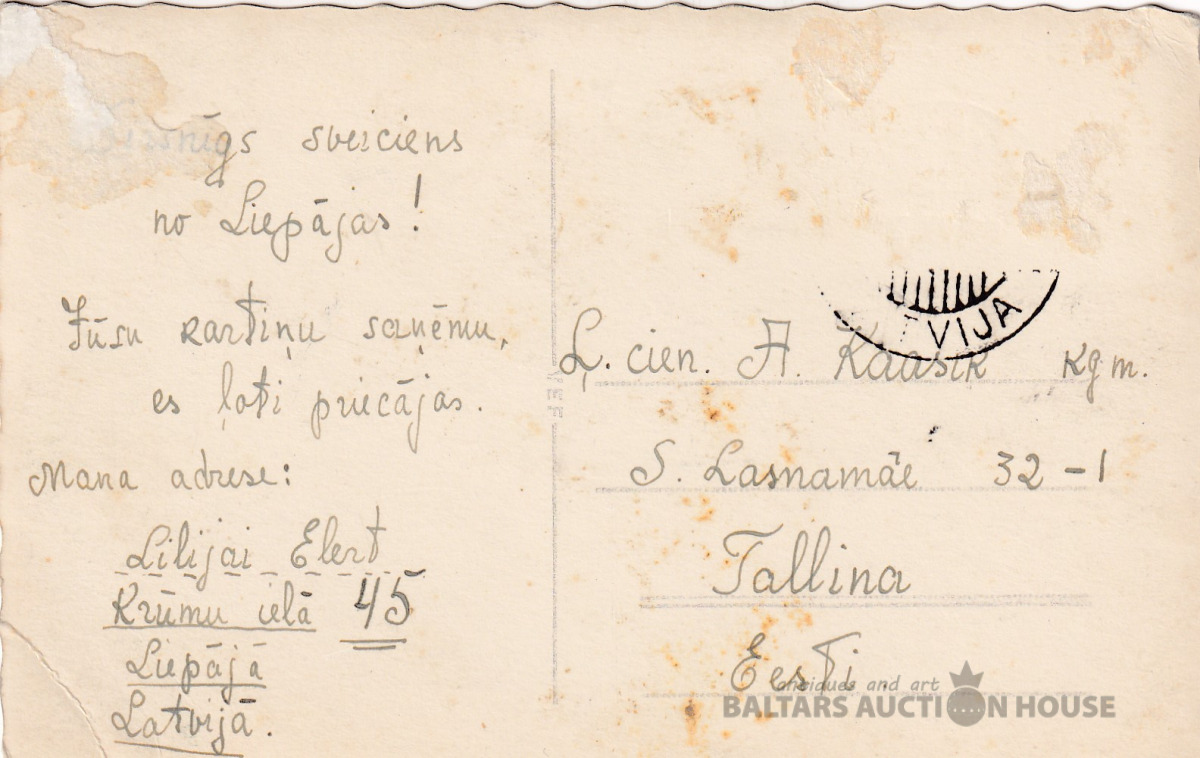 sveiciens
no Liepājas!
Jūsu kartiņu saņēmu,
es ļoti priecājas.
Mana adrese:
Lilijai Elert
Krūmu ielā 45
Liepājā
Latvijā.
TVIJA
Ļ. cien. A. Kaasik kgm.
S. Lasnamäe 32-1
Tallina
Eesti.
antiques and art
BALTARS AUCTION HOUSE